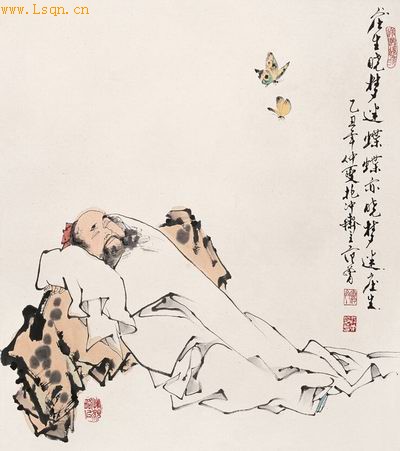 www.Lsqn.cn
庄生晓梦迷蝶蝶亦晓梦迷庄生
乙丑年仲夏抱冲斋主范曾